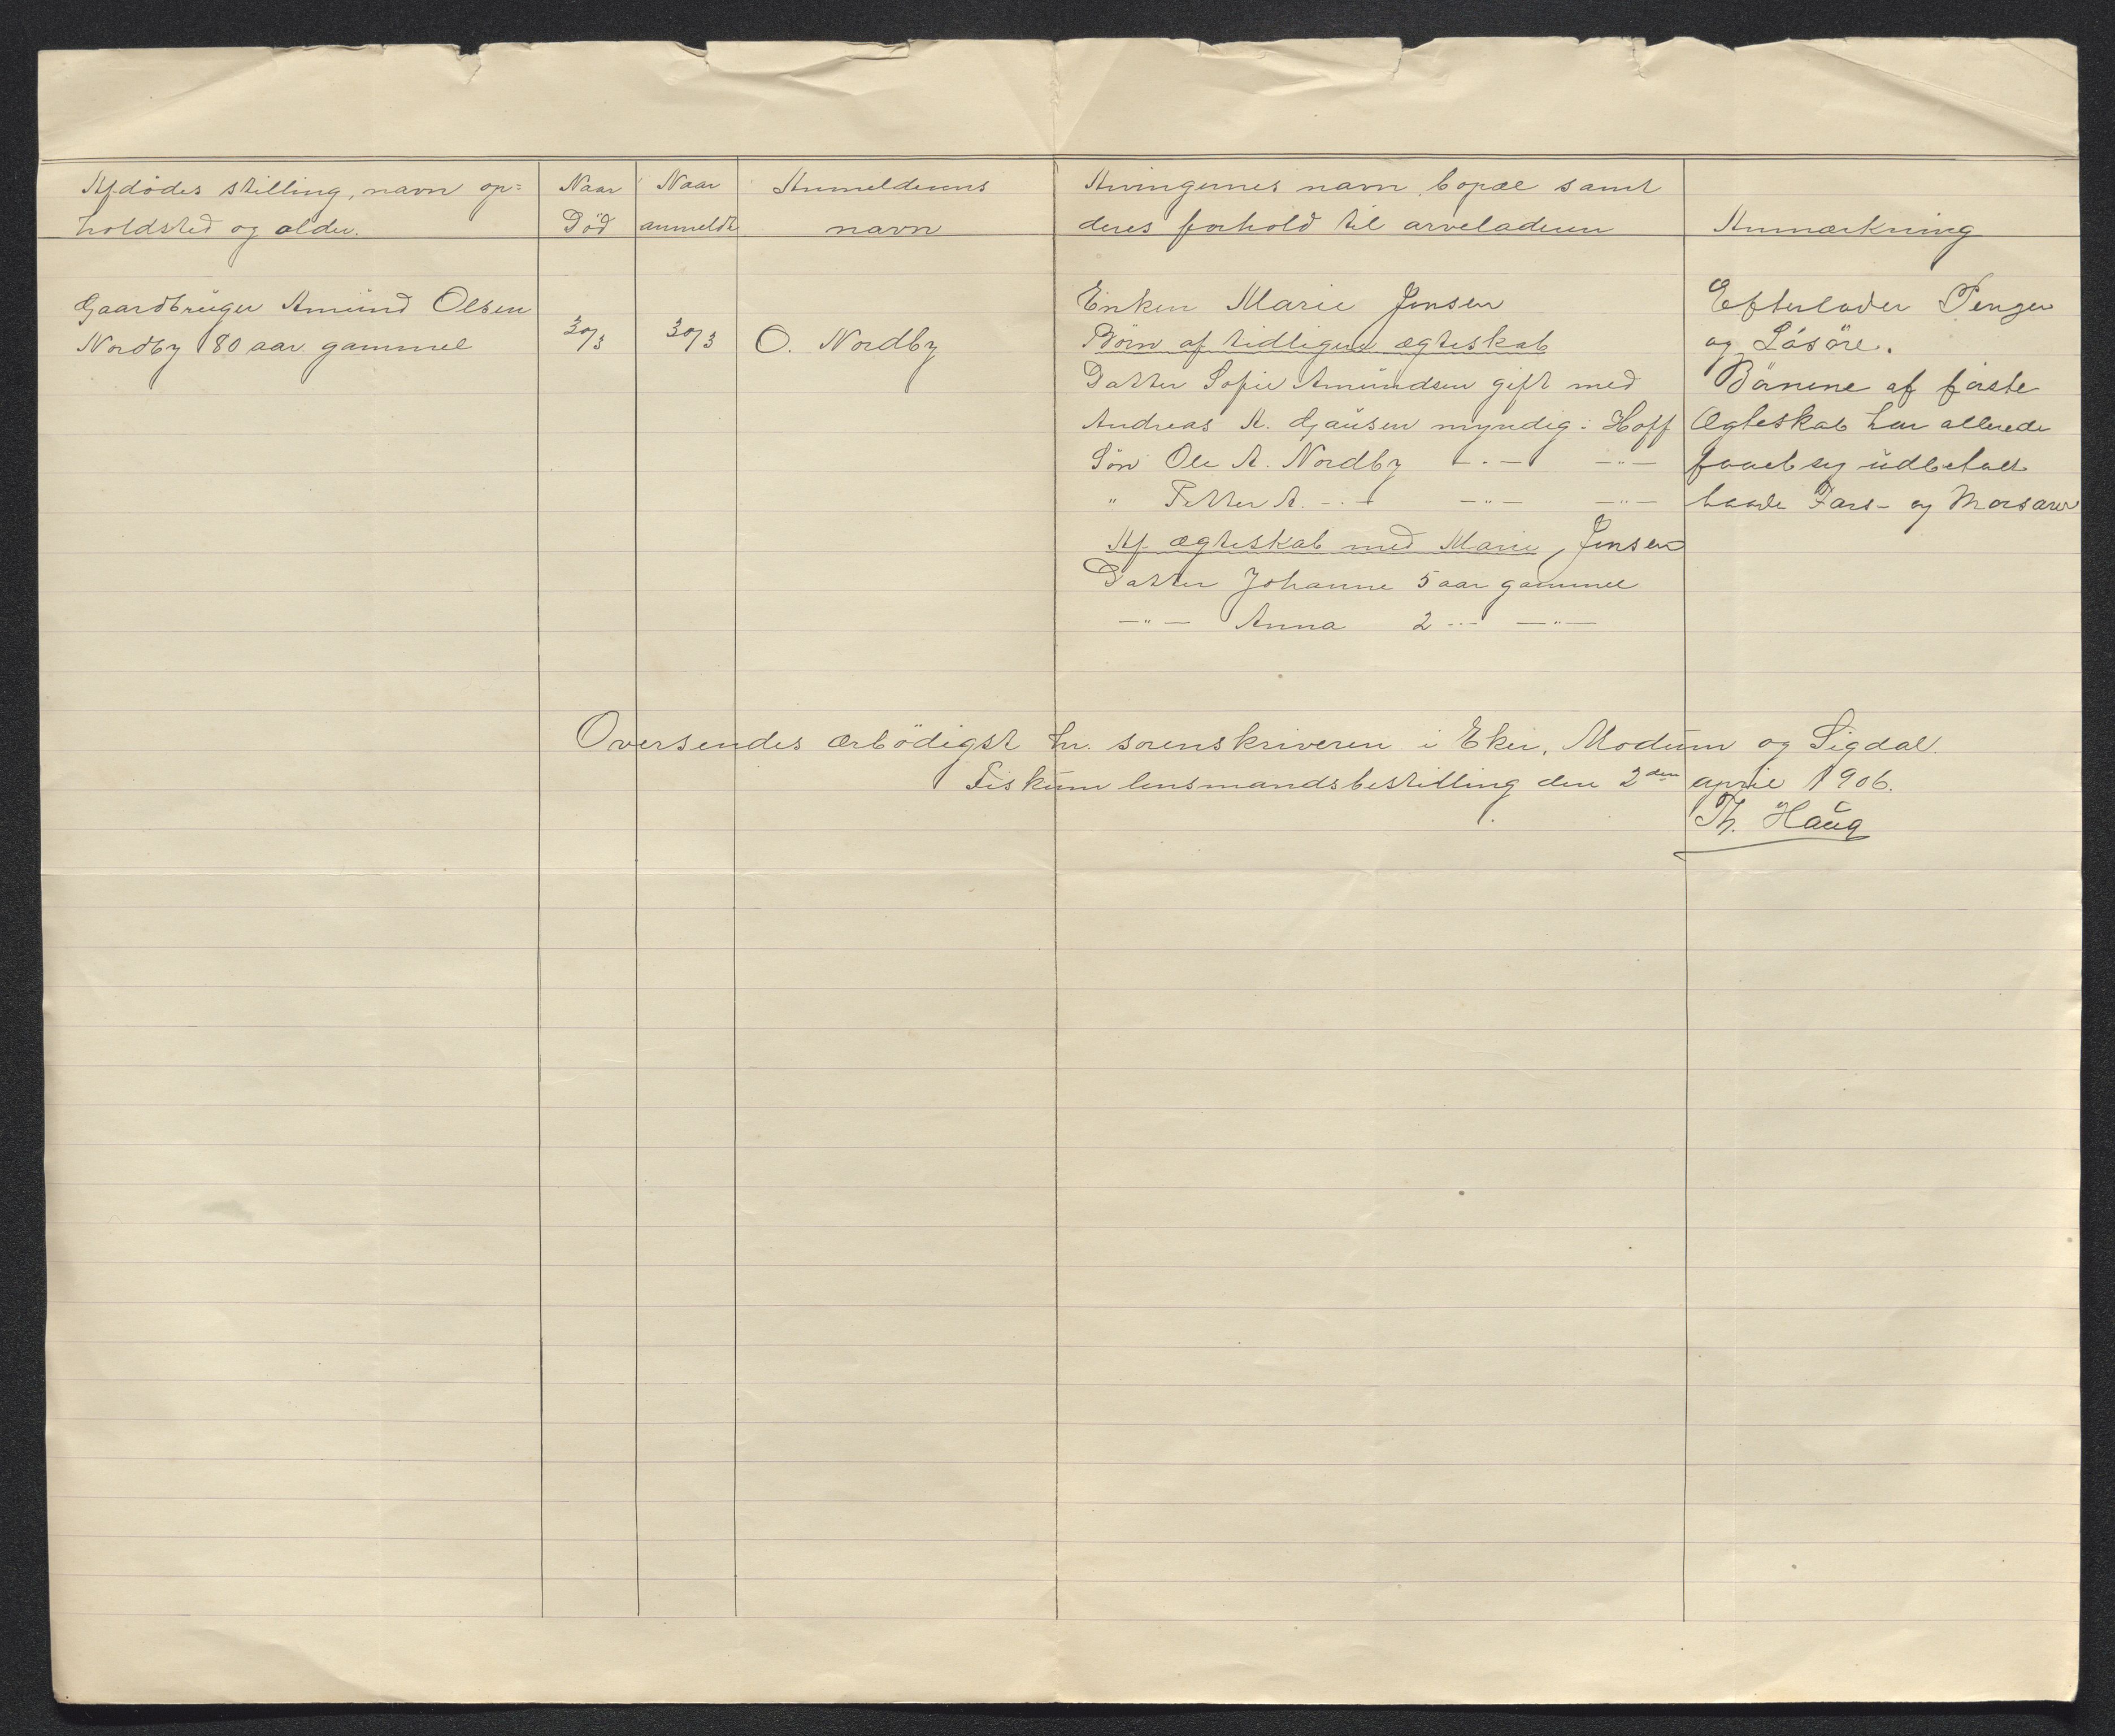 Afdödes stilling, navn op=
holdsted og alder.
Naar
Död
Naar
anmeldt
Anmelderens
navn
Arvingernes navn, bopæl samt
deres forhold til arveladeren
Anmærkning
Gaardbruger Amund Olsen
Nordby 80 aar gammel
30/3
30/3
O. Nordby
Enken Marie Jensen
Börn af tidligere ægteskab
Datter Sofie Amundsen gift med
Andreas A. myndig: Hoff
Sön Ole A. Nordby -.- -"-
" Petter A. -.- -"- -"-
Af ægteskab med Marie Jensen
Datter Johanne 5 aar gammel
-"- Anna 2 -"- -"-
Efterlader Penger
og Lösöre.
Börnene af förste
Ægteskab har allerede
faaet sig udbetalt
baade Fars- og Morsarv
Oversendes ærbödigst hr. sorenskriveren i Eker, Modum og Sigdal.
Fiskum lensmandsbestilling den 2den april 1906.
Th. Haug